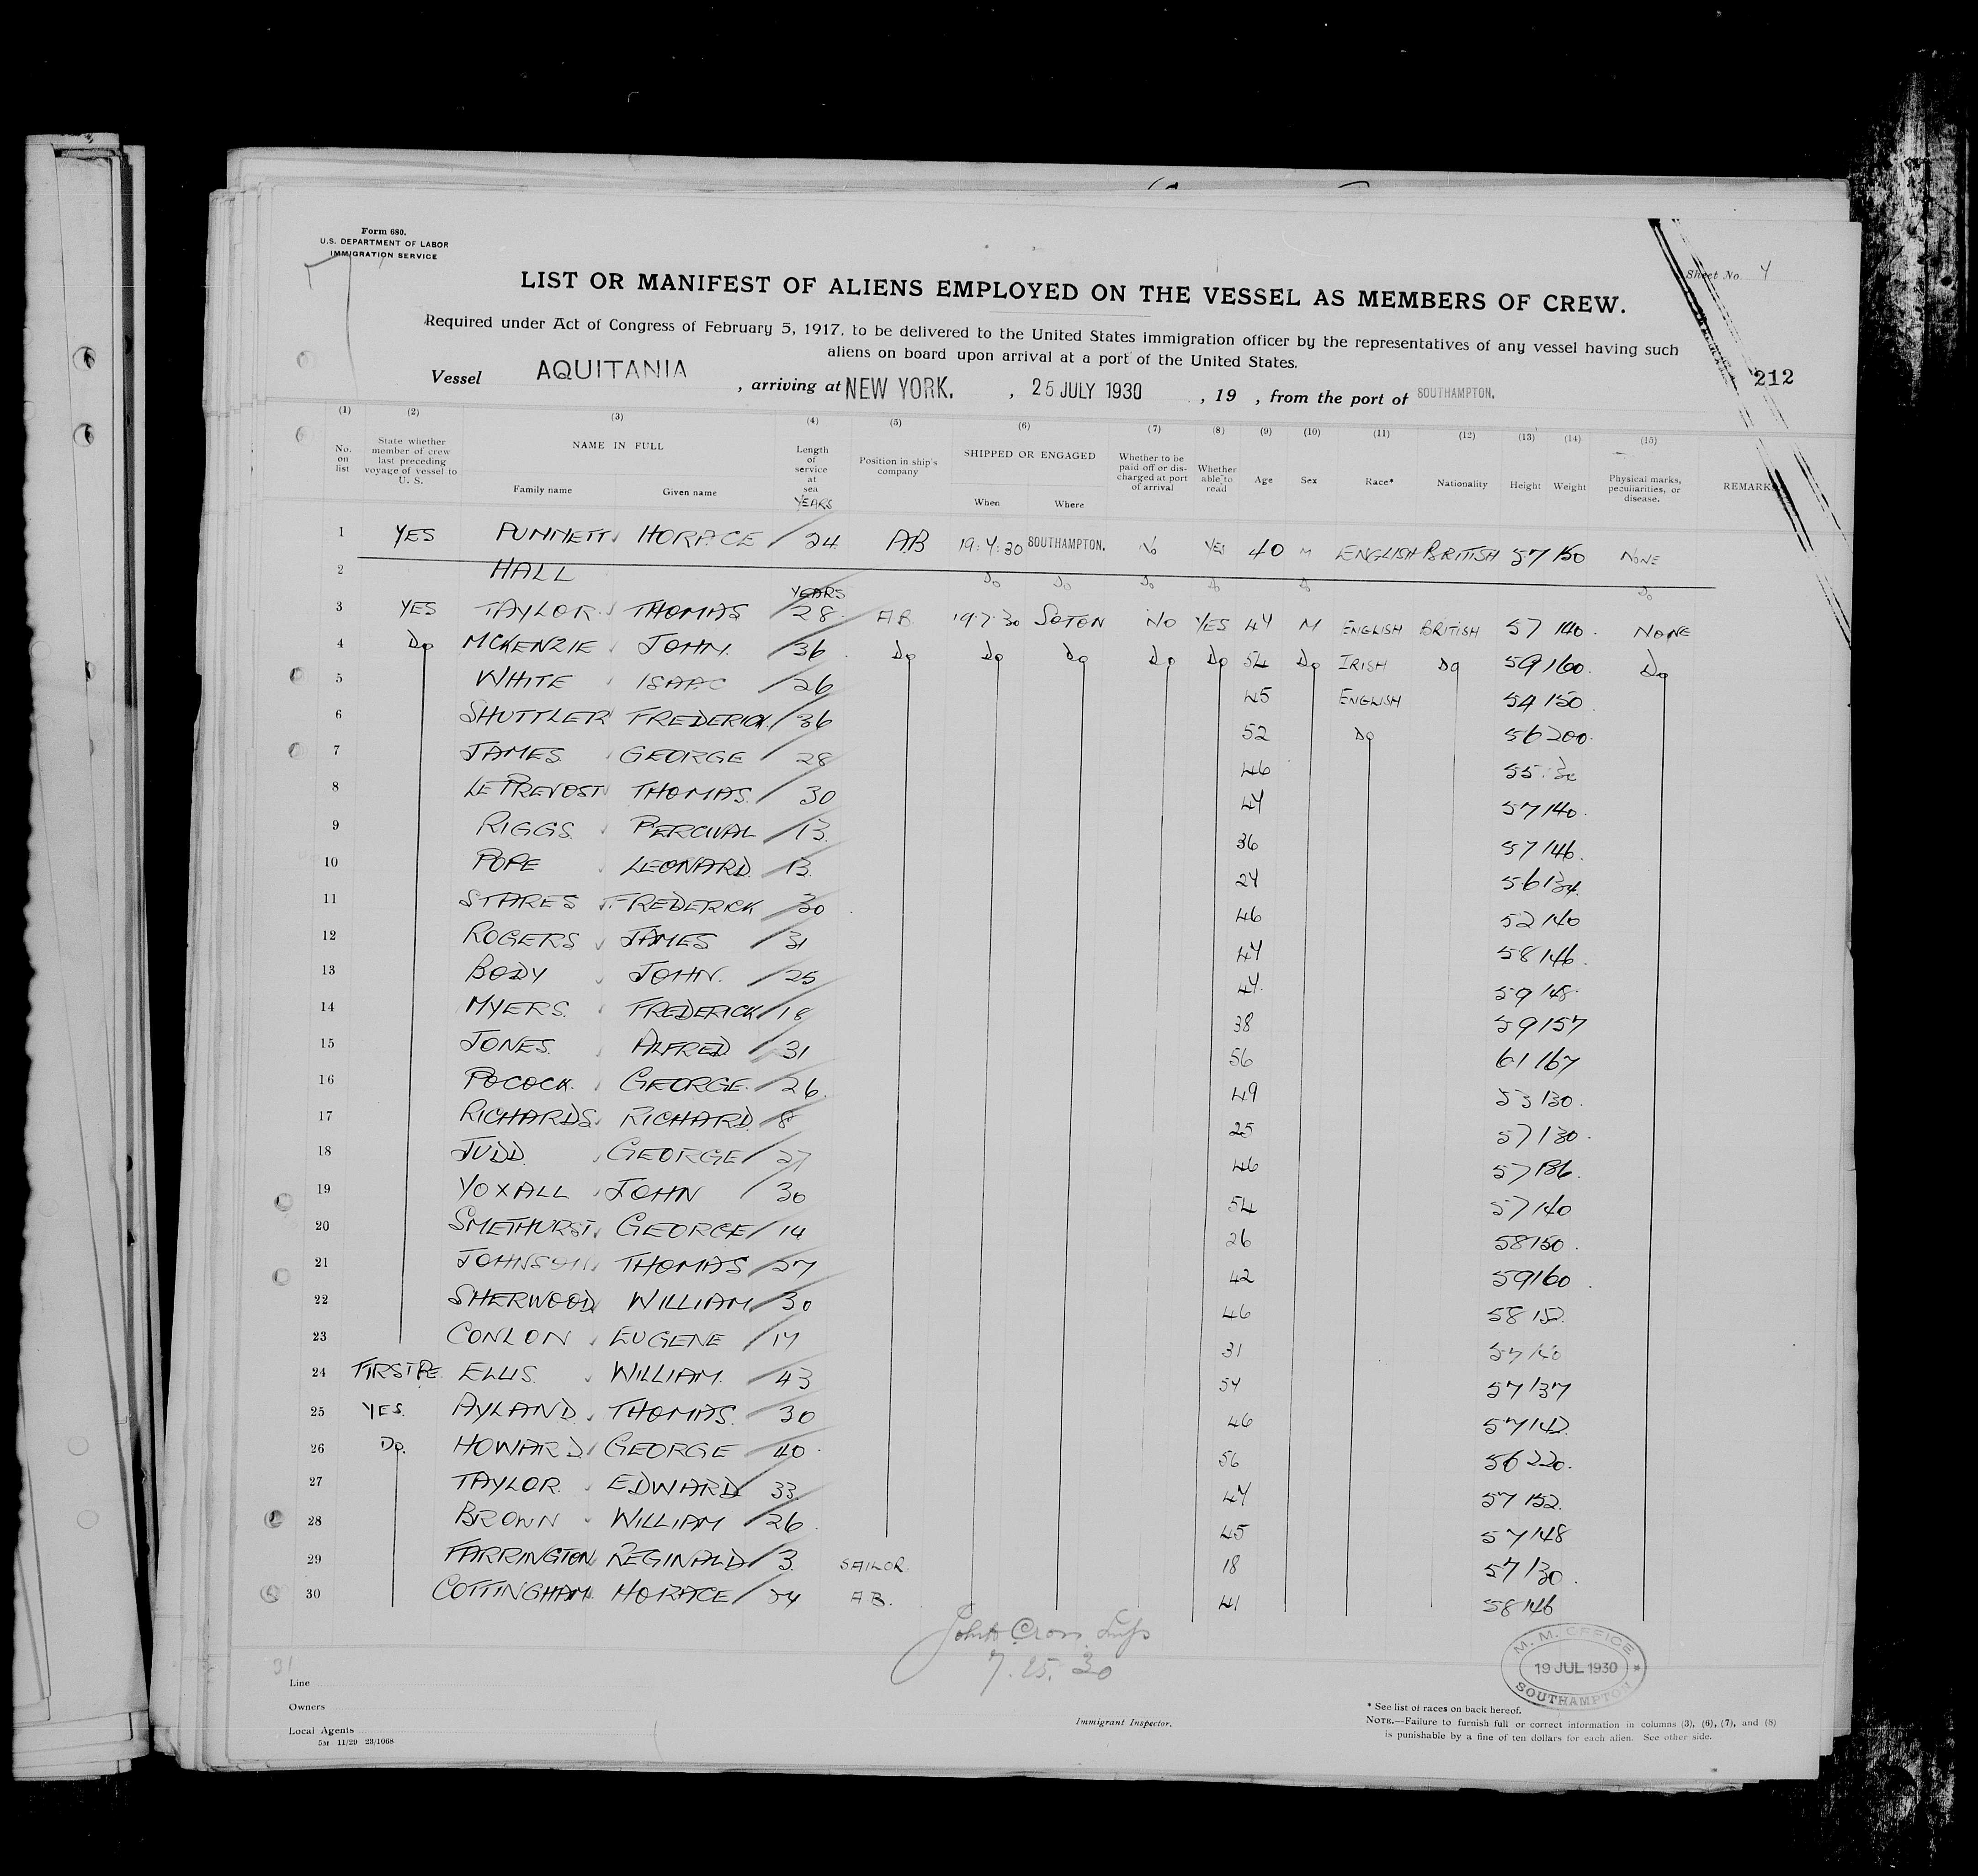 Form 680.
U.S. DEPARTMENT OF LABOR
IMMIGRATION SERVICE
Sheet No. 4
LIST OR MANIFEST OF ALIENS EMPLOYED ON THE VESSEL AS MEMBERS OF CREW.
Required under Act of Congress of February 5, 1917, to be delivered to the United States immigration officer by the representatives of any vessel having such
aliens on board upon arrival at a port of the United States.
212
Vessel AQUITANIA , arriving at NEW YORK. , 25 JULY 1930 , 19 , from the port of SOUTHAMPTON.
(1) (2) (3) (4) (5) (6) (7) (8) (9) (10) (11) (12) (13) (14) (15)
No. on list
State whether member of crew last preceding voyage of vessel to U. S.
NAME IN FULL
Family name
Given name
Length of service at sea YEARS
Position in ship's company
SHIPPED OR ENGAGED
When
Where
Whether to be paid off or discharged at port of arrival
Whether able to read
Age
Sex
Race*
Nationality
Height
Weight
Physical marks, peculiarities, or disease.
REMARKS
1 YES PUNNETT HORACE 24 AB 19.7.30 SOUTHAMPTON. No YES 40 M ENGLISH BRITISH 57 150 NONE
2 HALL Do Do Do Do Do Do
YEARS
3 YES TAYLOR THOMAS 28 AB 19.7.30 SOTON NO YES 47 M ENGLISH BRITISH 57 140. NONE
4 Do MCKENZIE JOHN. 36 Do Do Do Do Do 54 Do IRISH Do 59 160. Do
5 WHITE ISAAC 26 45 ENGLISH 54 150
6 SHUTTLER FREDERICK 36 52 Do 56 200
7 JAMES GEORGE 28 46 55
8 LE PREVOST THOMAS 30 47 57 140
9 RIGGS PERCIVAL 13 36 57 146
10 POPE LEONARD 13 27 56 134
11 STARES FREDERICK 30 46 52 140
12 ROGERS JAMES 31 47 58 146
13 BODY JOHN. 25 47 59 148
14 MYERS FREDERICK 18 38 59 157
15 JONES ALFRED 31 56 61 167
16 POCOCK GEORGE 26 49 53 130
17 RICHARDS RICHARD 8 25 57 130
18 JUDD GEORGE 27 46 57 186
19 YOXALL JOHN 30 54 57 140
20 SMETHURST GEORGE 14 26 58 150
21 JOHNSON THOMAS 27 42 59 160
22 SHERWOOD WILLIAM 30 46 58 152
23 CONLON EUGENE 17 31 57
24 FIRST PE ELLIS WILLIAM 43 57 57 137
25 YES. AYLAND THOMAS 30 46 57 142
26 Do. HOWARD GEORGE 40 56 56 220.
27 TAYLOR EDWARD 33 47 57 152
28 BROWN WILLIAM 26 45 57 148
29 FARRINGTON REGINALD 3 SAILOR 18 57 130
30 COTTINGHAM HORACE 24 AB. 41 58 146
Cross
7.25.30
M. M. OFFICE
19 JUL 1930
SOUTHAMPTON
31
Line
Owners
Local Agents
5M 11/29 23/1068
Immigrant Inspector.
* See list of races on back hereof.
NOTE.—Failure to furnish full or correct information in columns (3), (6), (7), and (8)
is punishable by a fine of ten dollars for each alien. See other side.